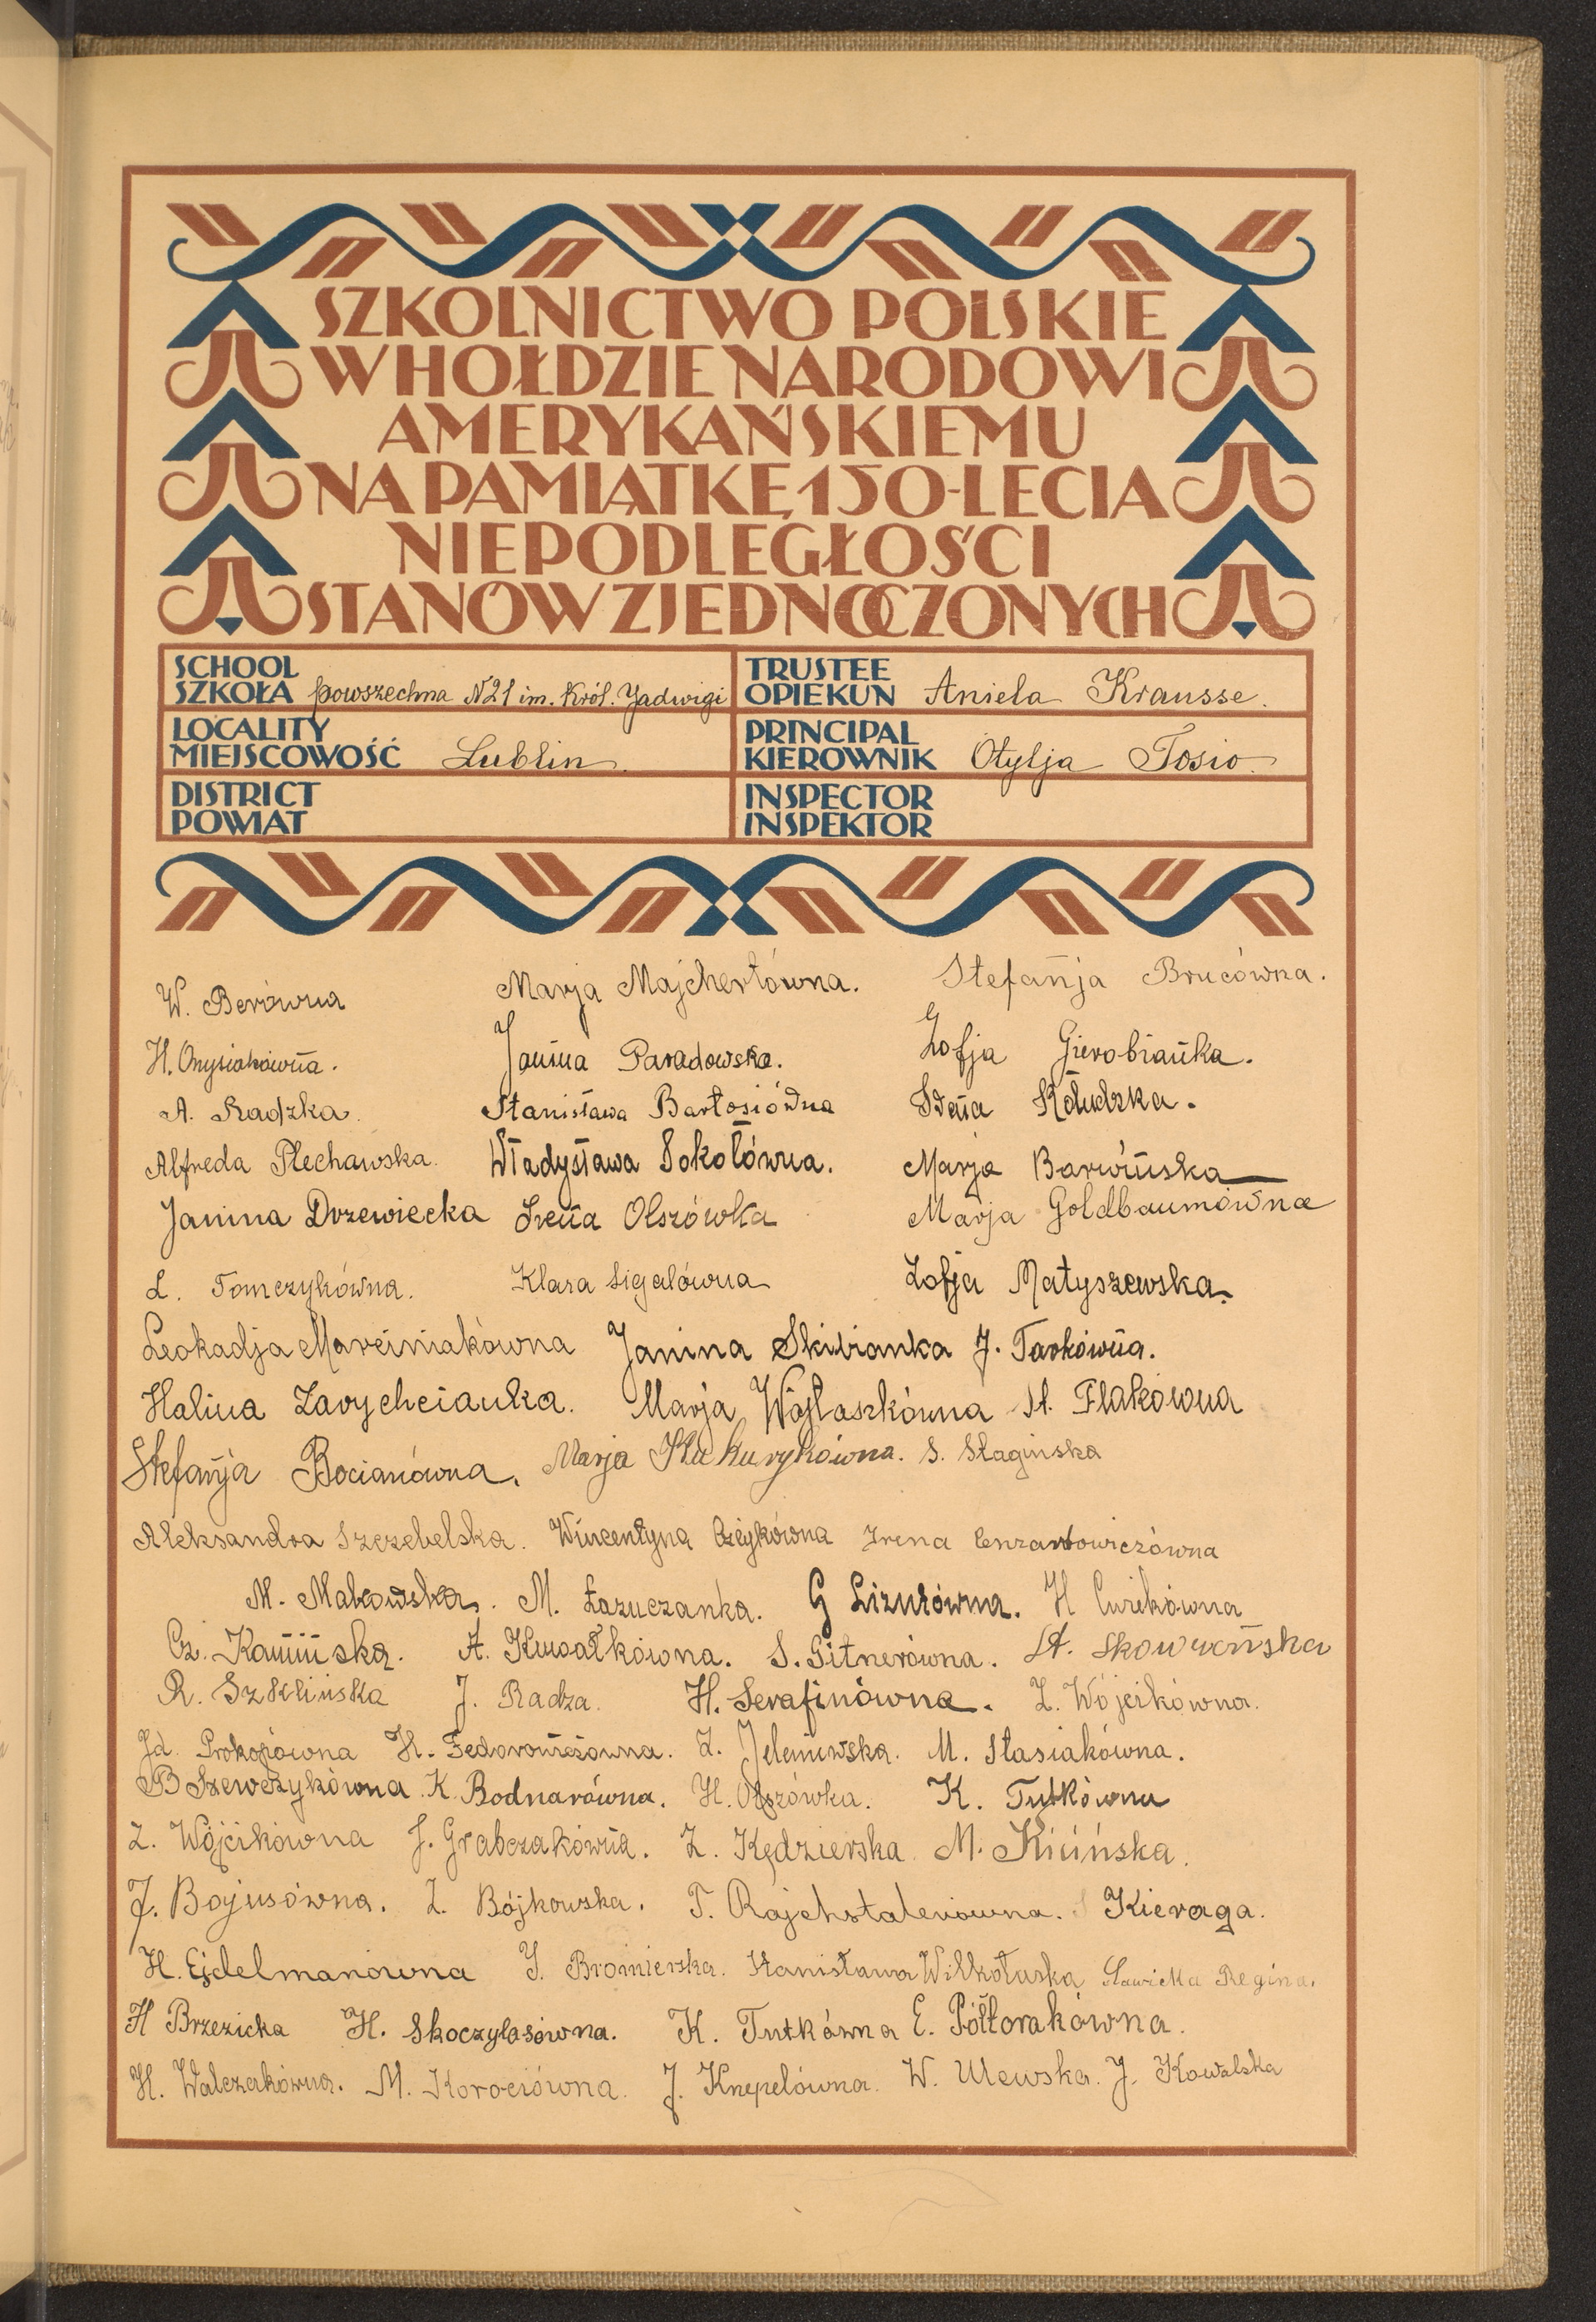 SZKOLNICTWO POLSKIE
W HOŁDZIE NARODOWI
AMERYKAŃSKIEMU
NA PAMIĄTKĘ 150-LECIA
NIEPODLEGŁOŚCI
STANÓW ZJEDNOCZONYCH
SCHOOL
SZKOŁA powszechna N21 im. Król. Jadwigi
TRUSTEE
OPIEKUN Aniela Krausse.
LOCALITY
MIEJSCOWOŚĆ Lublin.
PRINCIPAL
KIEROWNIK Otylja Tosio.
DISTRICT
POWIAT
INSPECTOR
INSPEKTOR
W. Berówna Marja Majchertówna. Stefanja Brucówna.
H. Onysiakówna. Janina Paradowska. Zofja Gierobianka.
A. Radzka. Stanisława Bartosiówna Irena Kołudzka.
Alfreda Plechawska. Władysława Sokołówna. Marja Barwińska
Janina Drzewiecka Irena Olszówka Marja Goldbaumówna
L. Tomczykówna. Klara Sigalówna Zofja Matyszewska.
Leokadja Marciniakówna Janina Skibianka J. Tarkówna.
Halina Zarychcianka. Marja Wójtaszkówna H. Flakówna
Stefanja Bocianówna. Marja Kukurykówna. S. Słagińska
Aleksandra Szczebelska. Wincentyna Irena Cenzartowiczówna
M. Makowska. M. Łazuczanka. G Lizurówna. H Ćwikówna
Cz. Kamińska. A. Kowalkówna. S. Gitnerówna. St. Skowrońska
R. Szklińska J. Radza. H. Serafinówna. Z. Wójcikówna.
Jd. Prokopówna H. Fedorowiczówna. Z. Jeleniewska. M. Stasiakówna.
B Szewczykówna. K. Bodnarówna. H. Olszówka. K. Tutkówna
Z. Wójcikówna J. Grabczakówna. Z. Kędzierska M. Kicińska.
J. Bojusówna. Z. Bójkowska. T. Rajchstalerówna. Kieraga.
H. Ejdelmanówna J. Bromierska. Stanisława Wilkołaska Sławicka Regina.
H Brzezicka H. Skoczylasówna. K. Tutkówna E. Półtorakówna.
H. Walczakówna. M. Korociówna. J. Knepelówna. W. Ulewska. J. Kowalska